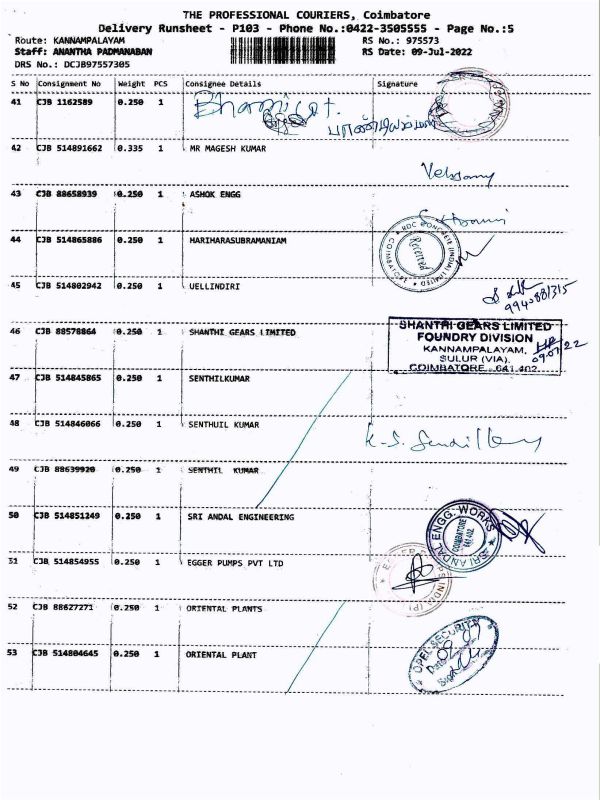 THE PROFESSIONAL COURIERS, Coimbatore
Delivery Runsheet - P103 - Phone No.:0422-3505555 - Page No.:5
Route: KANNAMPALAYAM RS No.: 975573
Staff: ANANTHA PADMANABAN RS Date: 09-Jul-2022
DRS No.: DCJB97557305
S No Consignment No Weight PCS Consignee Details Signature
41 CJB 1162589 0.250 1
42 CJB 514891662 0.335 1 MR MAGESH KUMAR
43 CJB 88658939 0.250 1 ASHOK ENGG
RDC CONCRETE (INDIA) LIMITED
COIMBATORE
Received
44 CJB 514865886 0.250 1 HARIHARASUBRAMANIAM
45 CJB 514802942 0.250 1 UELLINDIRI
9940881315
46 CJB 88578864 0.250 1 SHANTHI GEARS LIMITED
SHANTHI GEARS LIMITED
FOUNDRY DIVISION
KANNAMPALAYAM,
SULUR (VIA).
COIMBATORE 641 402
09.07.22
47 CJB 514845865 0.250 1 SENTHILKUMAR
48 CJB 514846066 0.250 1 SENTHUIL KUMAR
49 CJB 88639920 0.250 1 SENTHIL KUMAR
50 CJB 514851249 0.250 1 SRI ANDAL ENGINEERING
SRI ANDAL ENGG. WORKS
COIMBATORE
641 402
51 CJB 514854955 0.250 1 EGGER PUMPS PVT LTD
52 CJB 88627271 0.250 1 ORIENTAL PLANTS
53 CJB 514804645 0.250 1 ORIENTAL PLANT
OPEL SECURITY